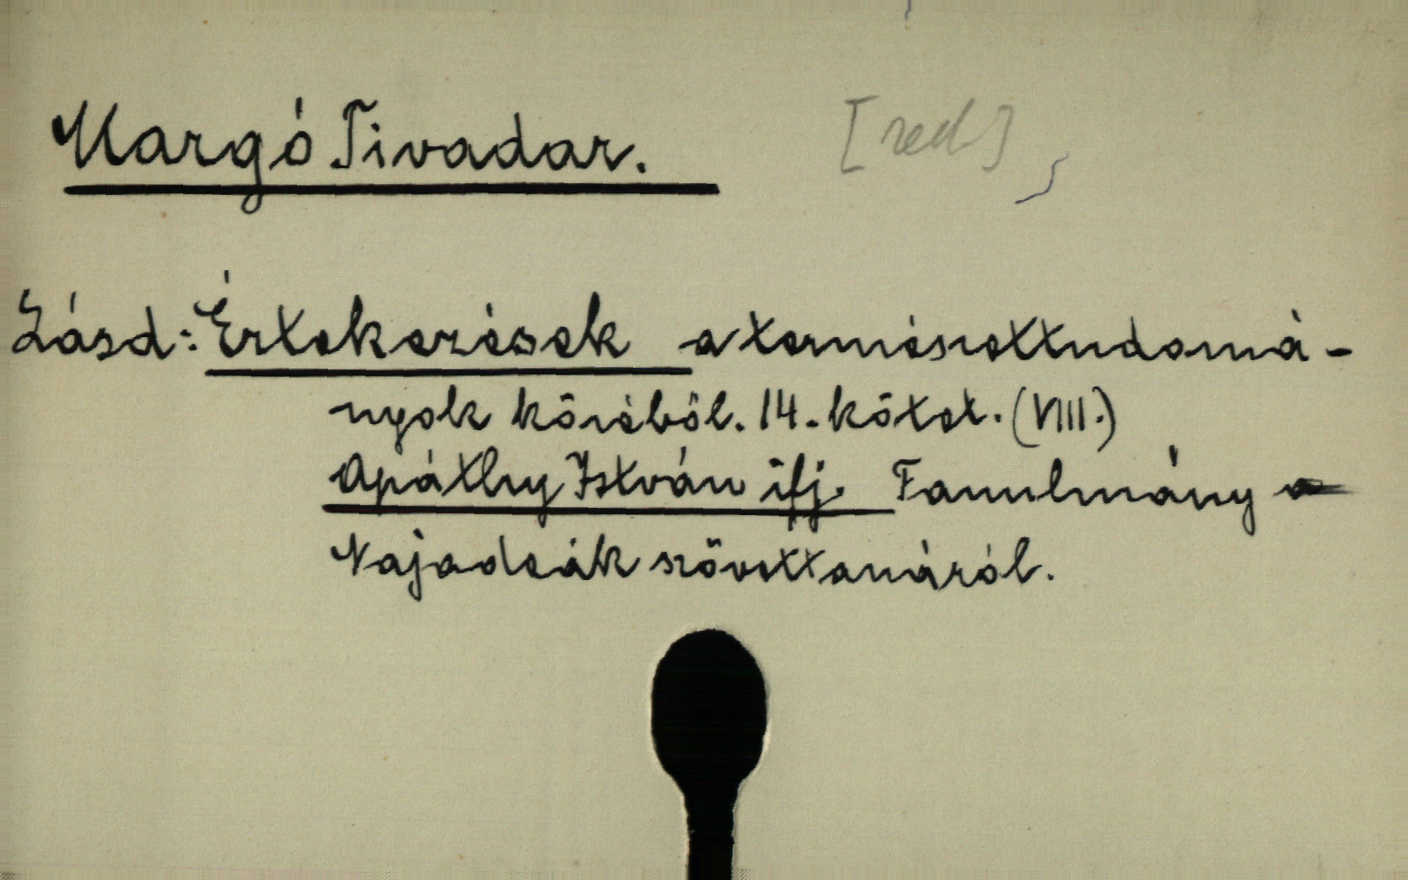 Margó Tivadar. [red]
Lásd: Értekezések a természettudomá-
nyok köréből. 14. kötet. (VIII.)
Apáthy István ifj. Tanulmány a
Najadeák szövettanáról.